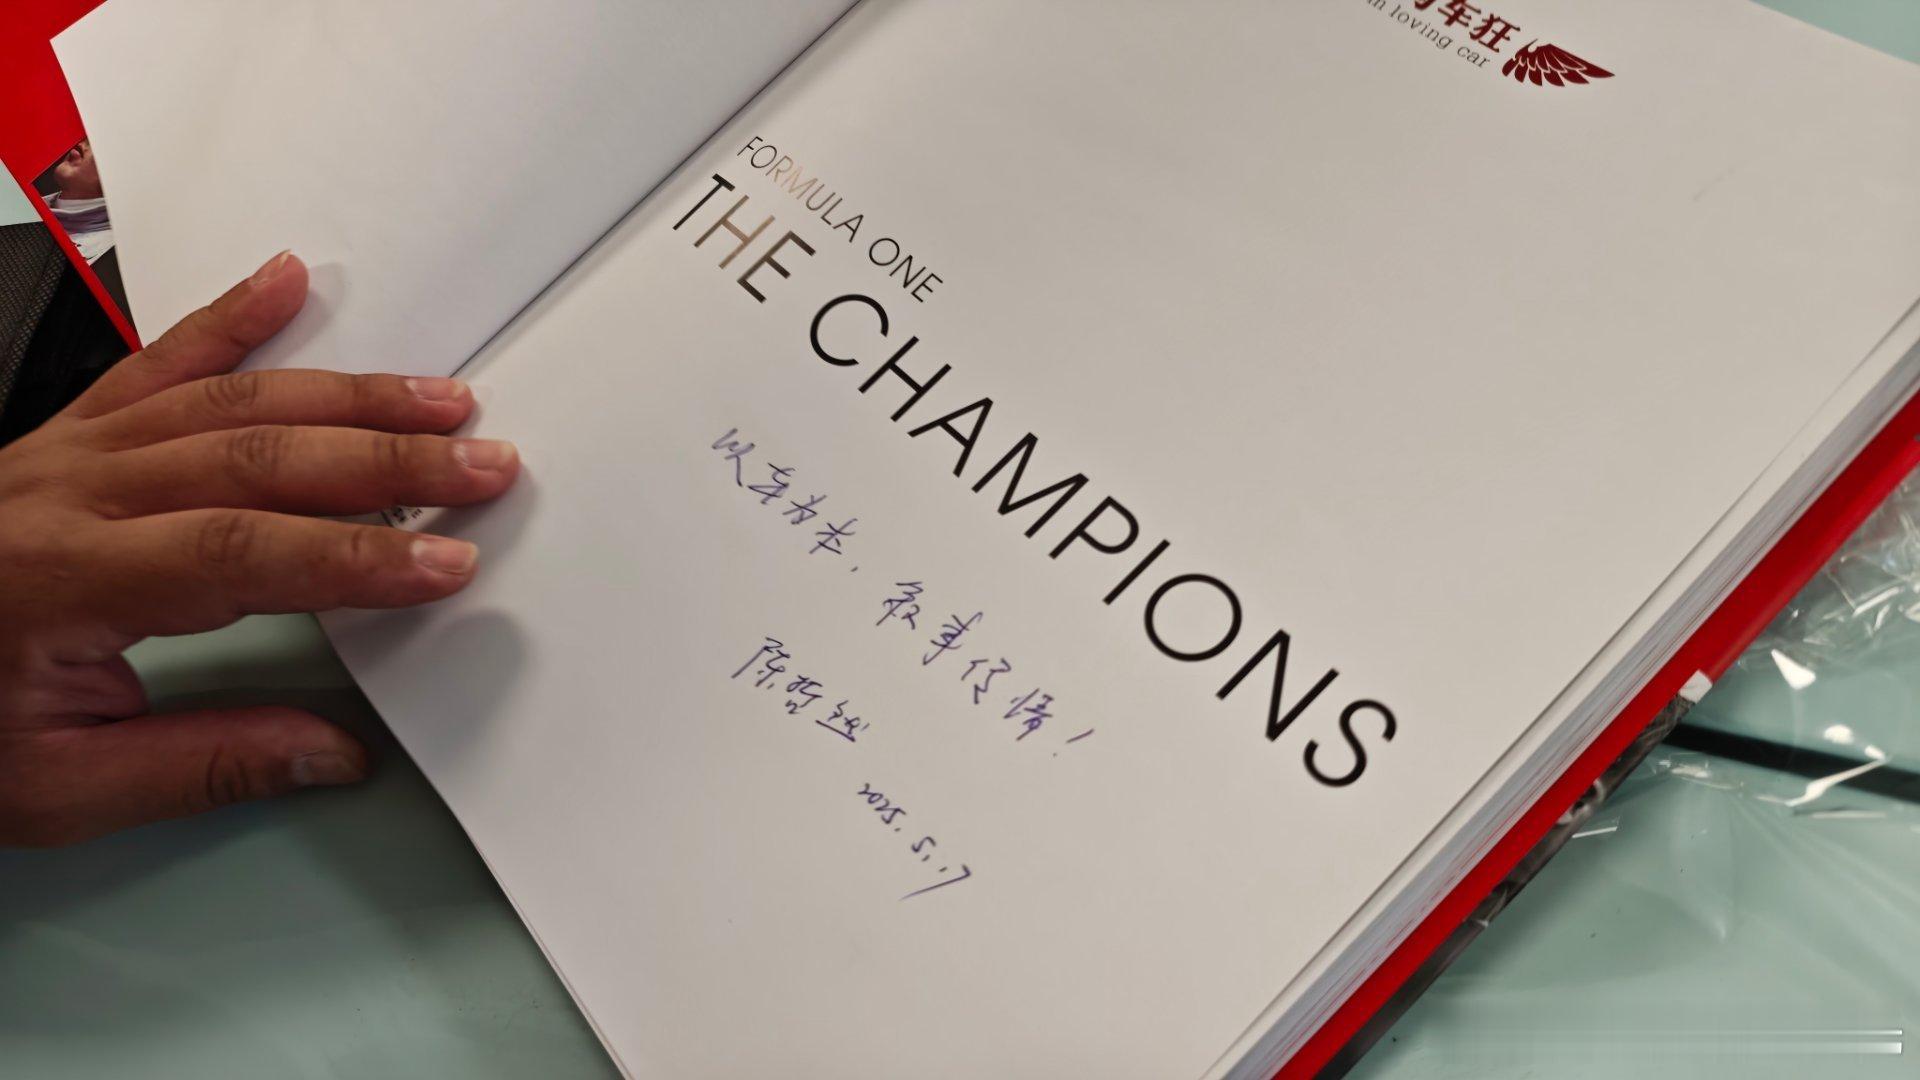 车狂
in loving car
FORMULA ONE
THE CHAMPIONS
以车为本，叙事传情！
陈哲
2025.5.17